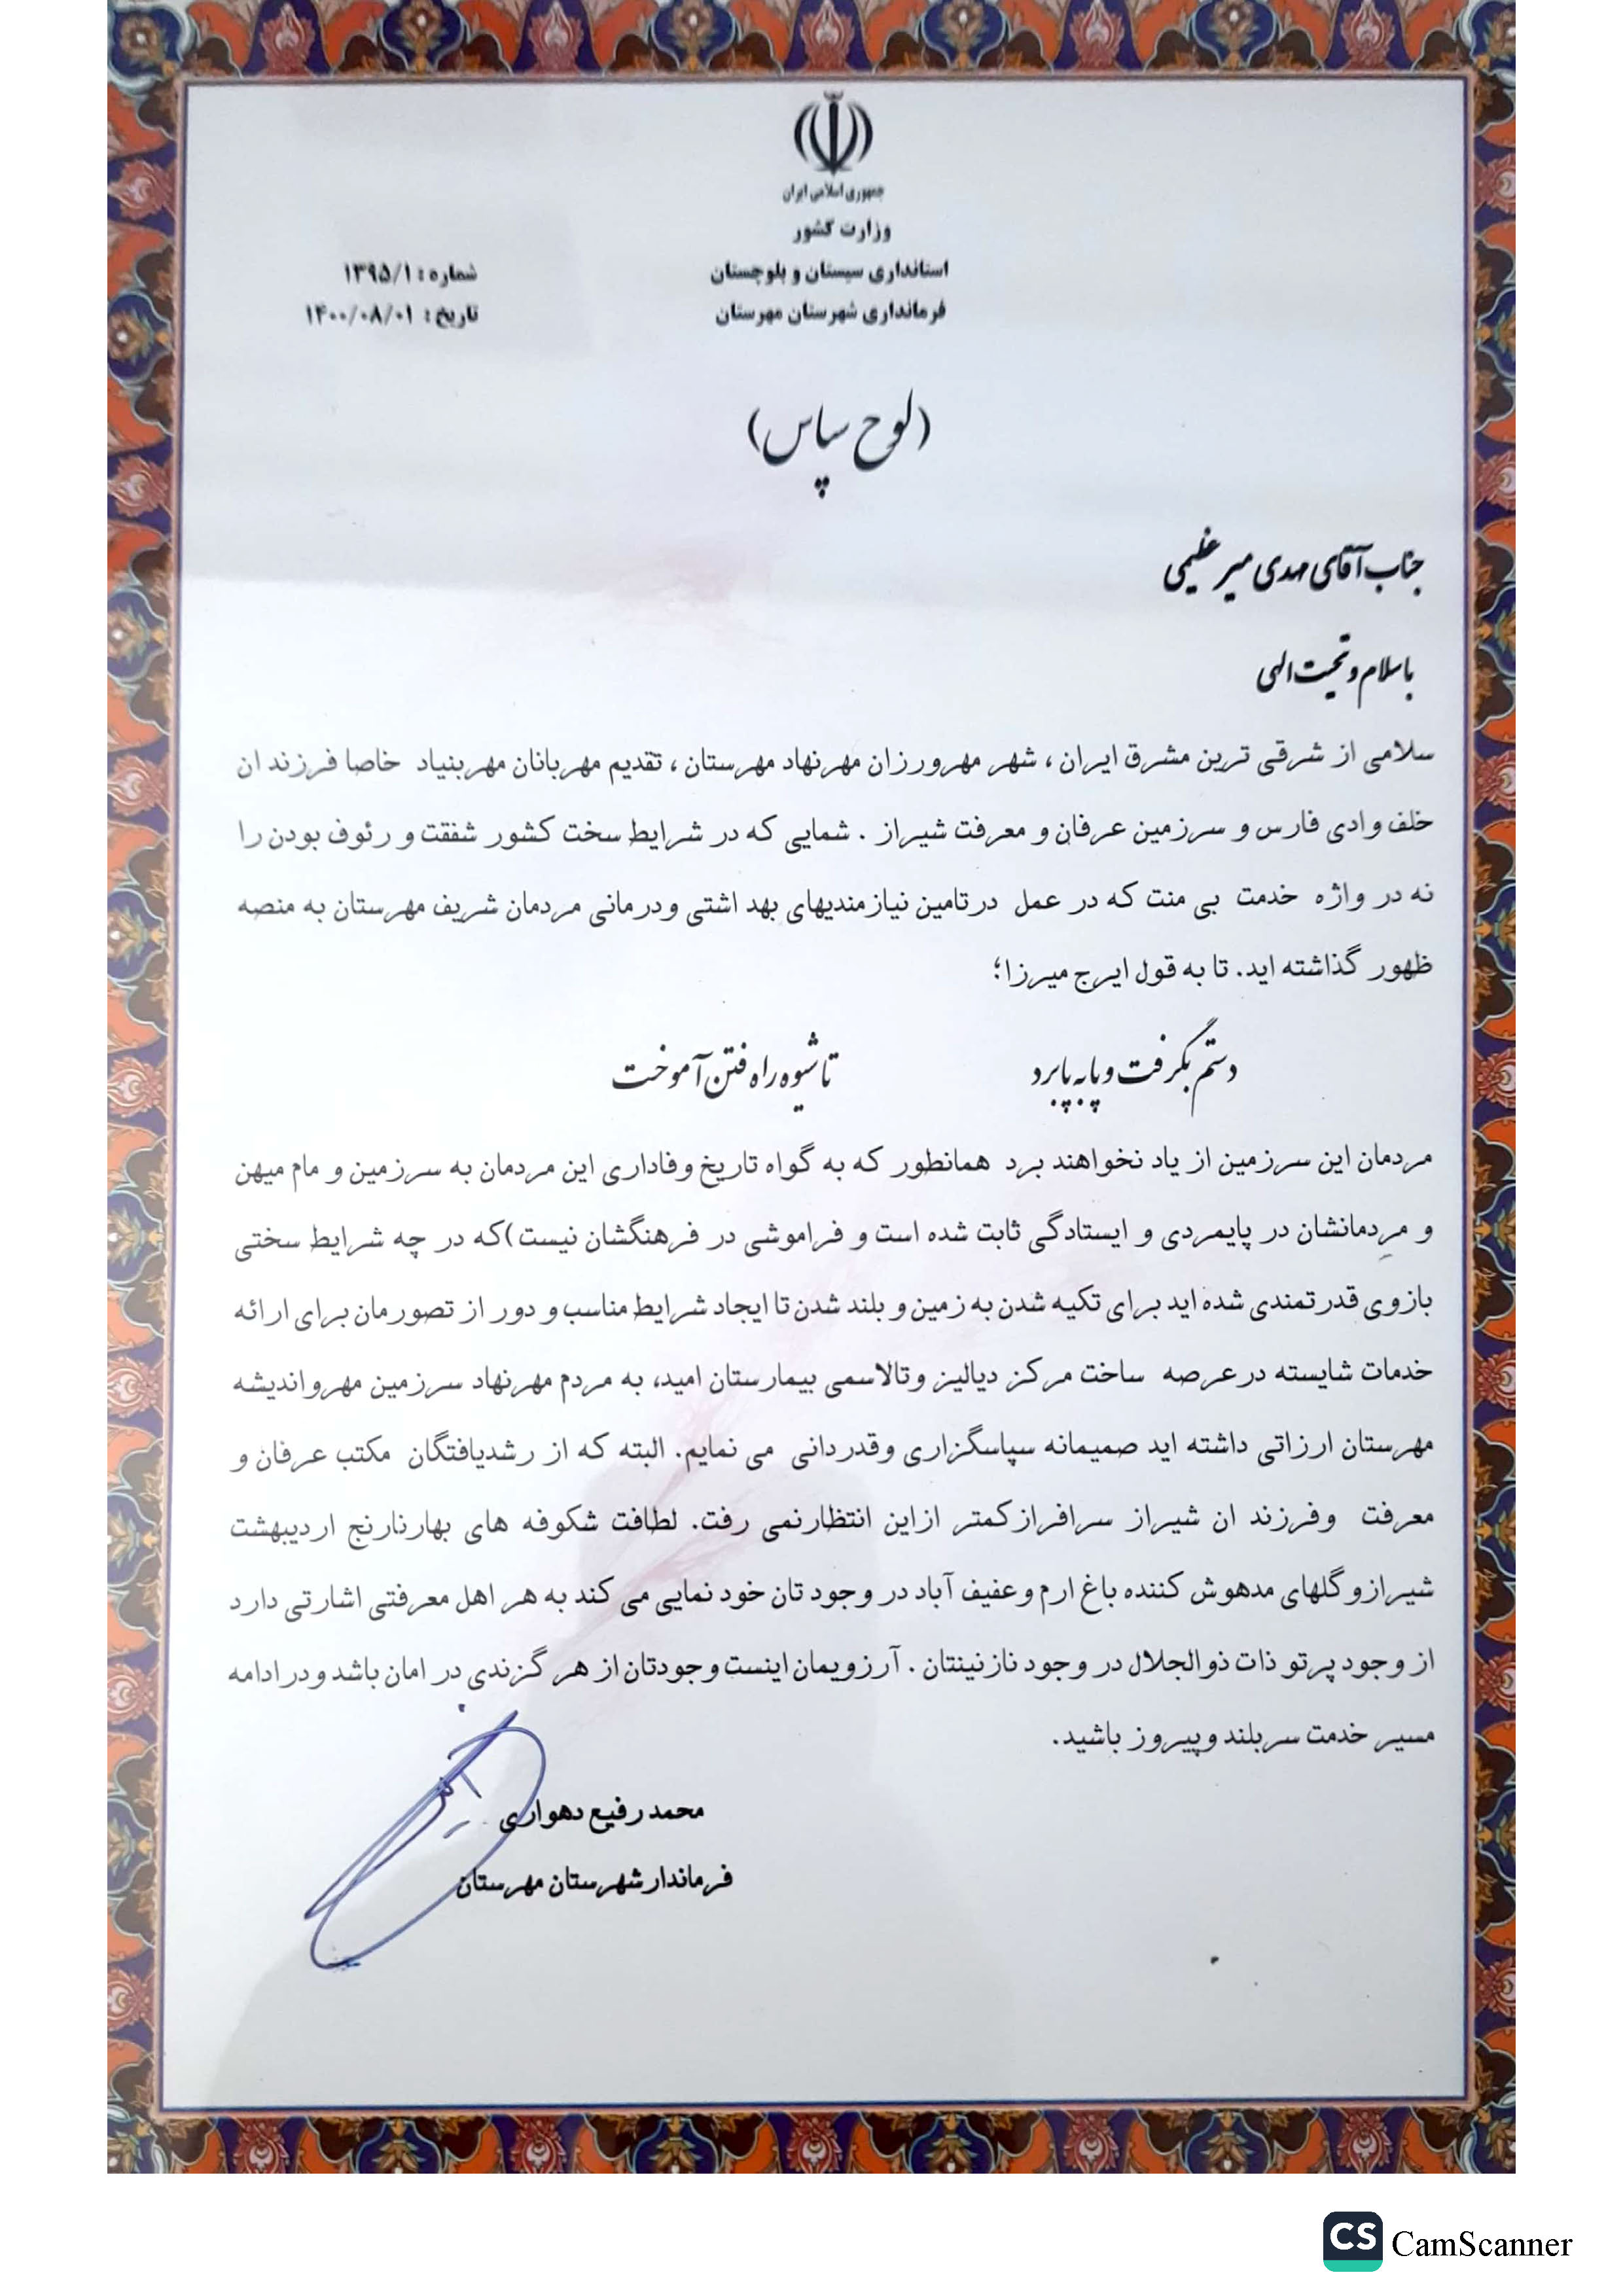 جمهوری اسلامی ایران
وزارت کشور
استانداری سیستان و بلوچستان
فرمانداری شهرستان مهرستان
شماره : ۱۳۹۵/۱
تاریخ : ۱۴۰۰/۰۸/۰۱
(لوح سپاس)
جناب آقای مهدی میر
با سلام و تحیت الهی
سلامی از شرقی ترین مشرق ایران ، شهر مهرورزان مهرنهاد مهرستان ، تقدیم مهربانان مهربنیاد خاصا فرزند ان
خلف وادی فارس و سرزمین عرفان و معرفت شیراز . شمایی که در شرایط سخت کشور شفقت و رئوف بودن را
نه در واژه خدمت بی منت که در عمل درتامین نیازمندیهای بهد اشتی ودرمانی مردمان شریف مهرستان به منصه
ظهور گذاشته اید. تا به قول ایرج میرزا؛
دستم بگرفت و پا به پا برد تا شیوه راه رفتن آموخت
مردمان این سرزمین از یاد نخواهند برد همانطور که به گواه تاریخ وفاداری این مردمان به سرزمین و مام میهن
و مردمانشان در پایمردی و ایستادگی ثابت شده است و فراموشی در فرهنگشان نیست)که در چه شرایط سختی
بازوی قدرتمندی شده اید برای تکیه شدن به زمین و بلند شدن تا ایجاد شرایط مناسب و دور از تصورمان برای ارائه
خدمات شایسته درعرصه ساخت مرکز دیالیز وتالاسمی بیمارستان امید، به مردم مهرنهاد سرزمین مهرواندیشه
مهرستان ارزاتی داشته اید صمیمانه سپاسگزاری وقدردانی می نمایم. البته که از رشدیافتگان مکتب عرفان و
معرفت وفرزند ان شیراز سرافرازکمتر ازاین انتظارنمی رفت. لطافت شکوفه های بهارنارنج اردیبهشت
شیرازوگلهای مدهوش کننده باغ ارم وعفیف آباد در وجود تان خود نمایی می کند به هر اهل معرفتی اشارتی دارد
از وجود پرتو ذات ذوالجلال در وجود نازنینتان . آرزویمان اینست وجودتان از هر گزندی در امان باشد ودر ادامه
مسیر خدمت سربلند وپیروز باشید.
محمد رفیع دهواری
فرماندار شهرستان مهرستان
CS CamScanner